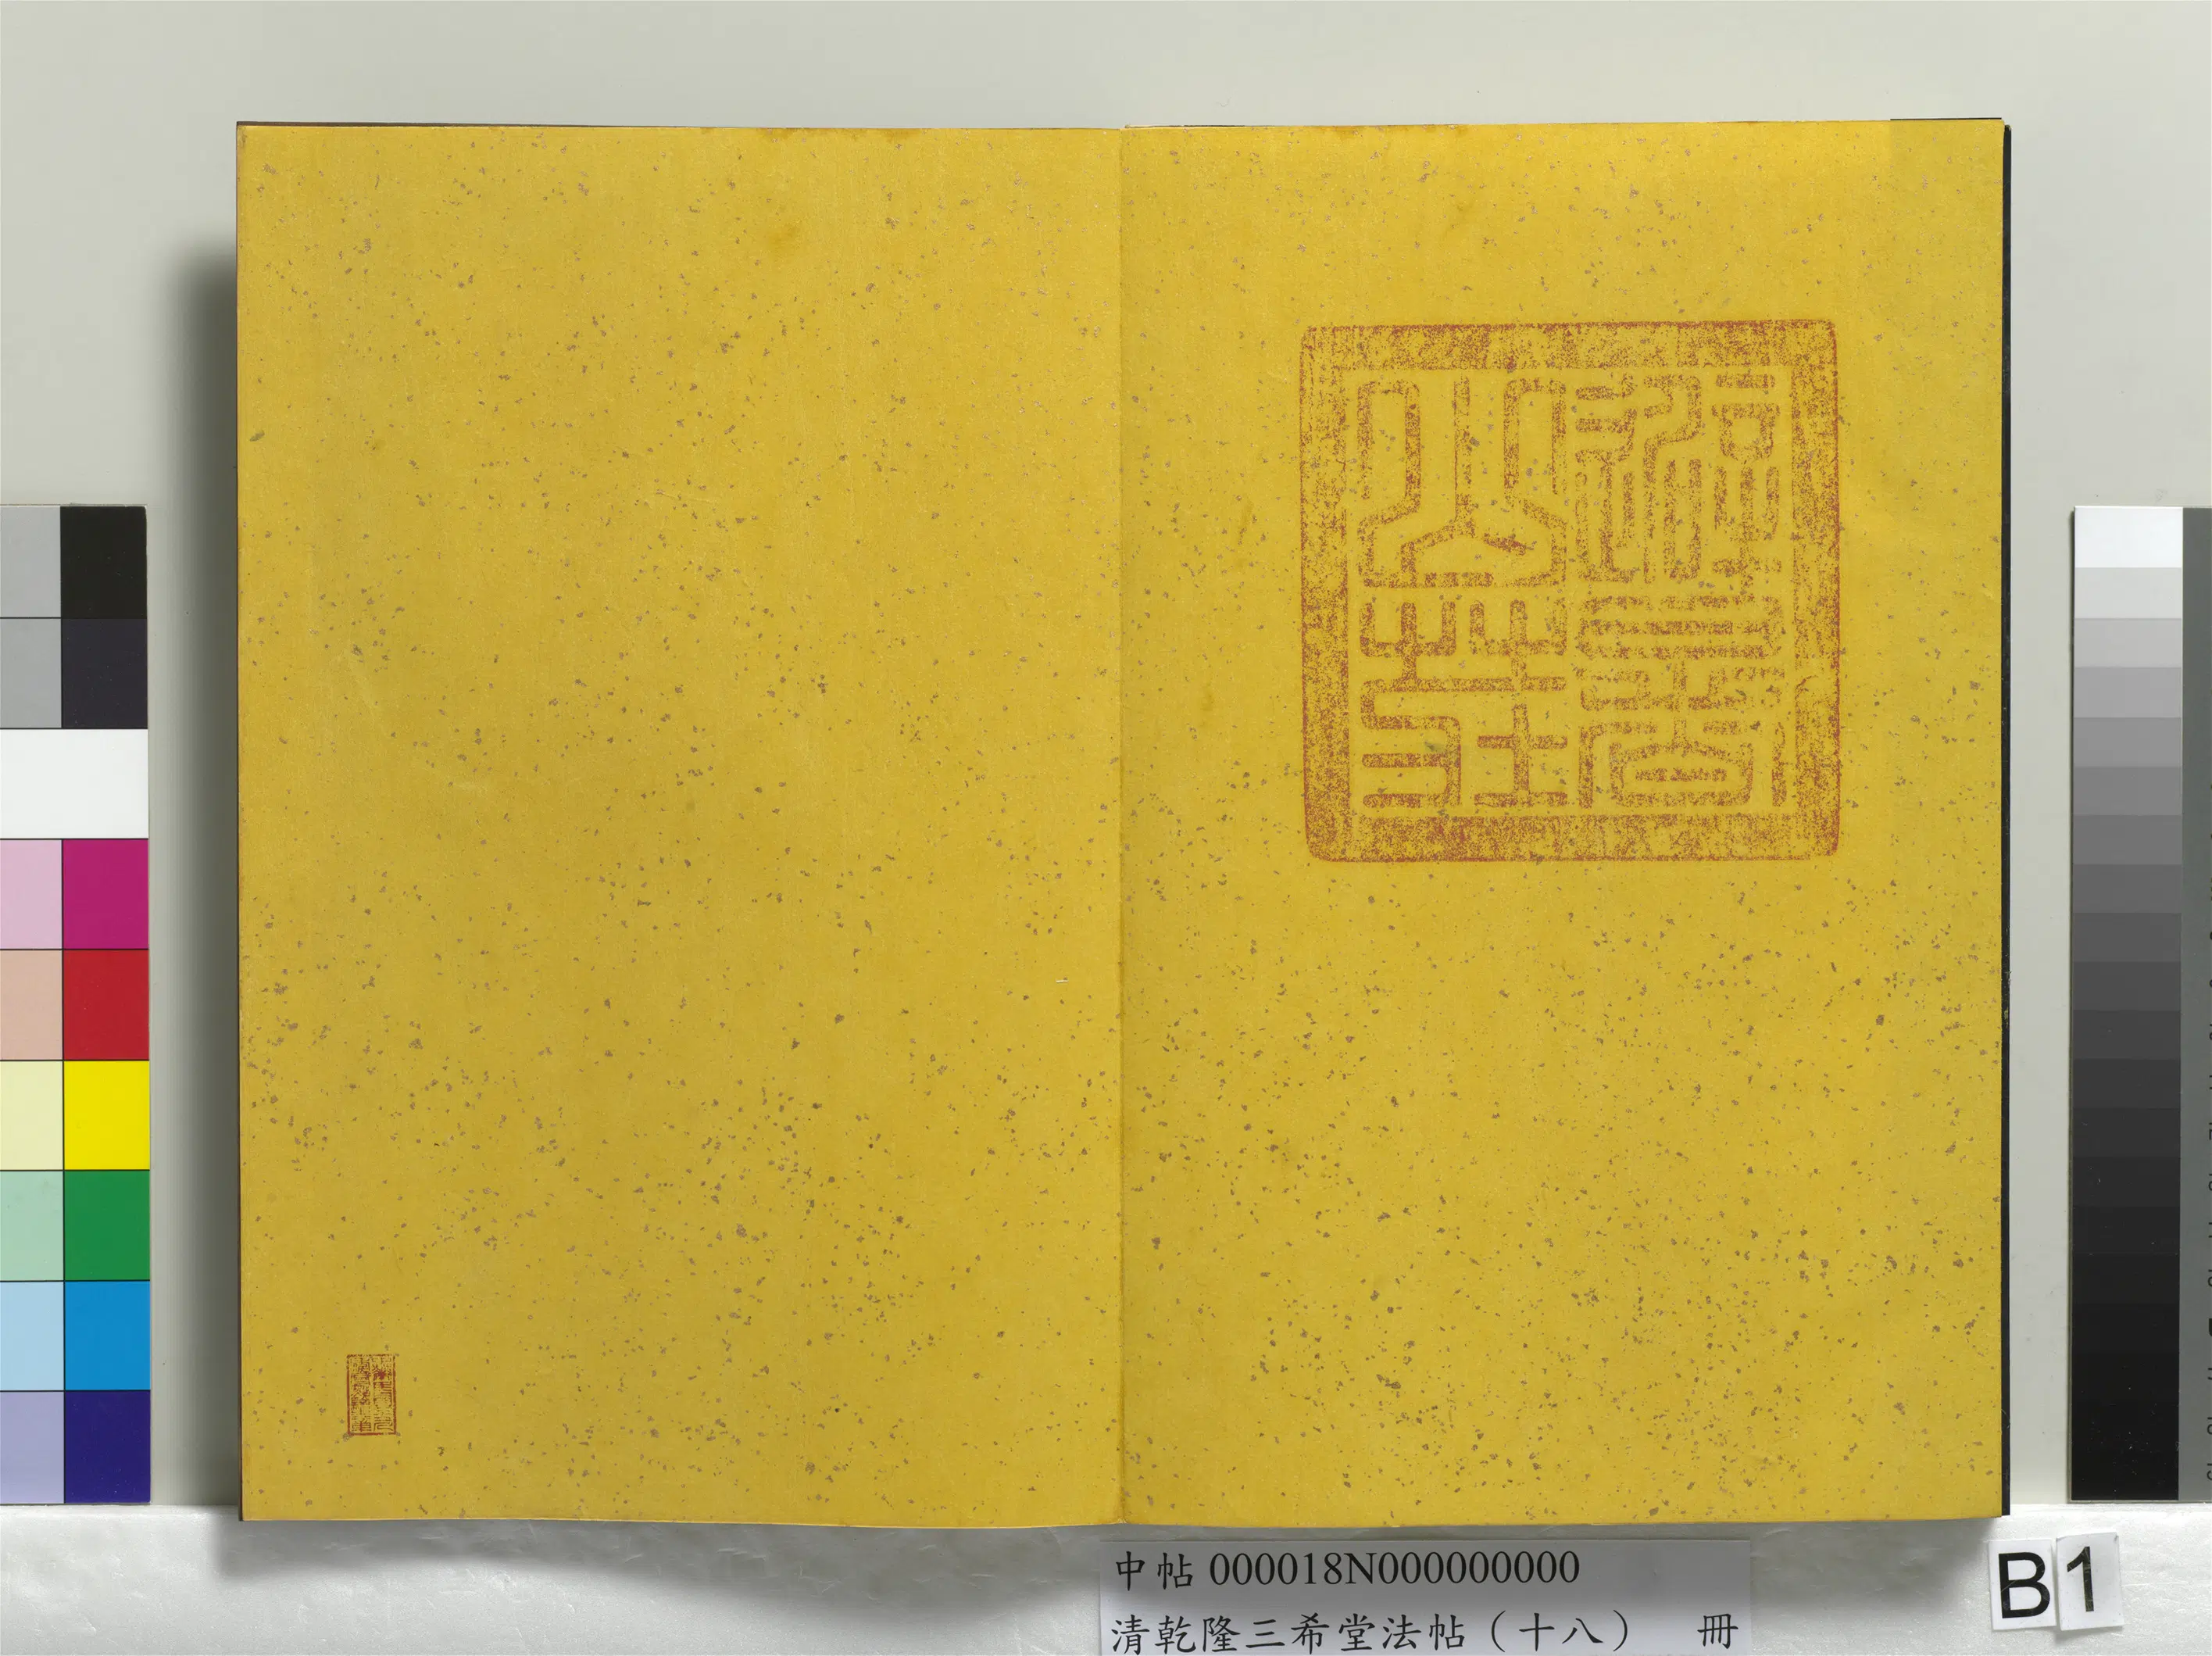 避暑
山莊
中帖 000018N000000000
清乾隆三希堂法帖（十八） 冊
B1